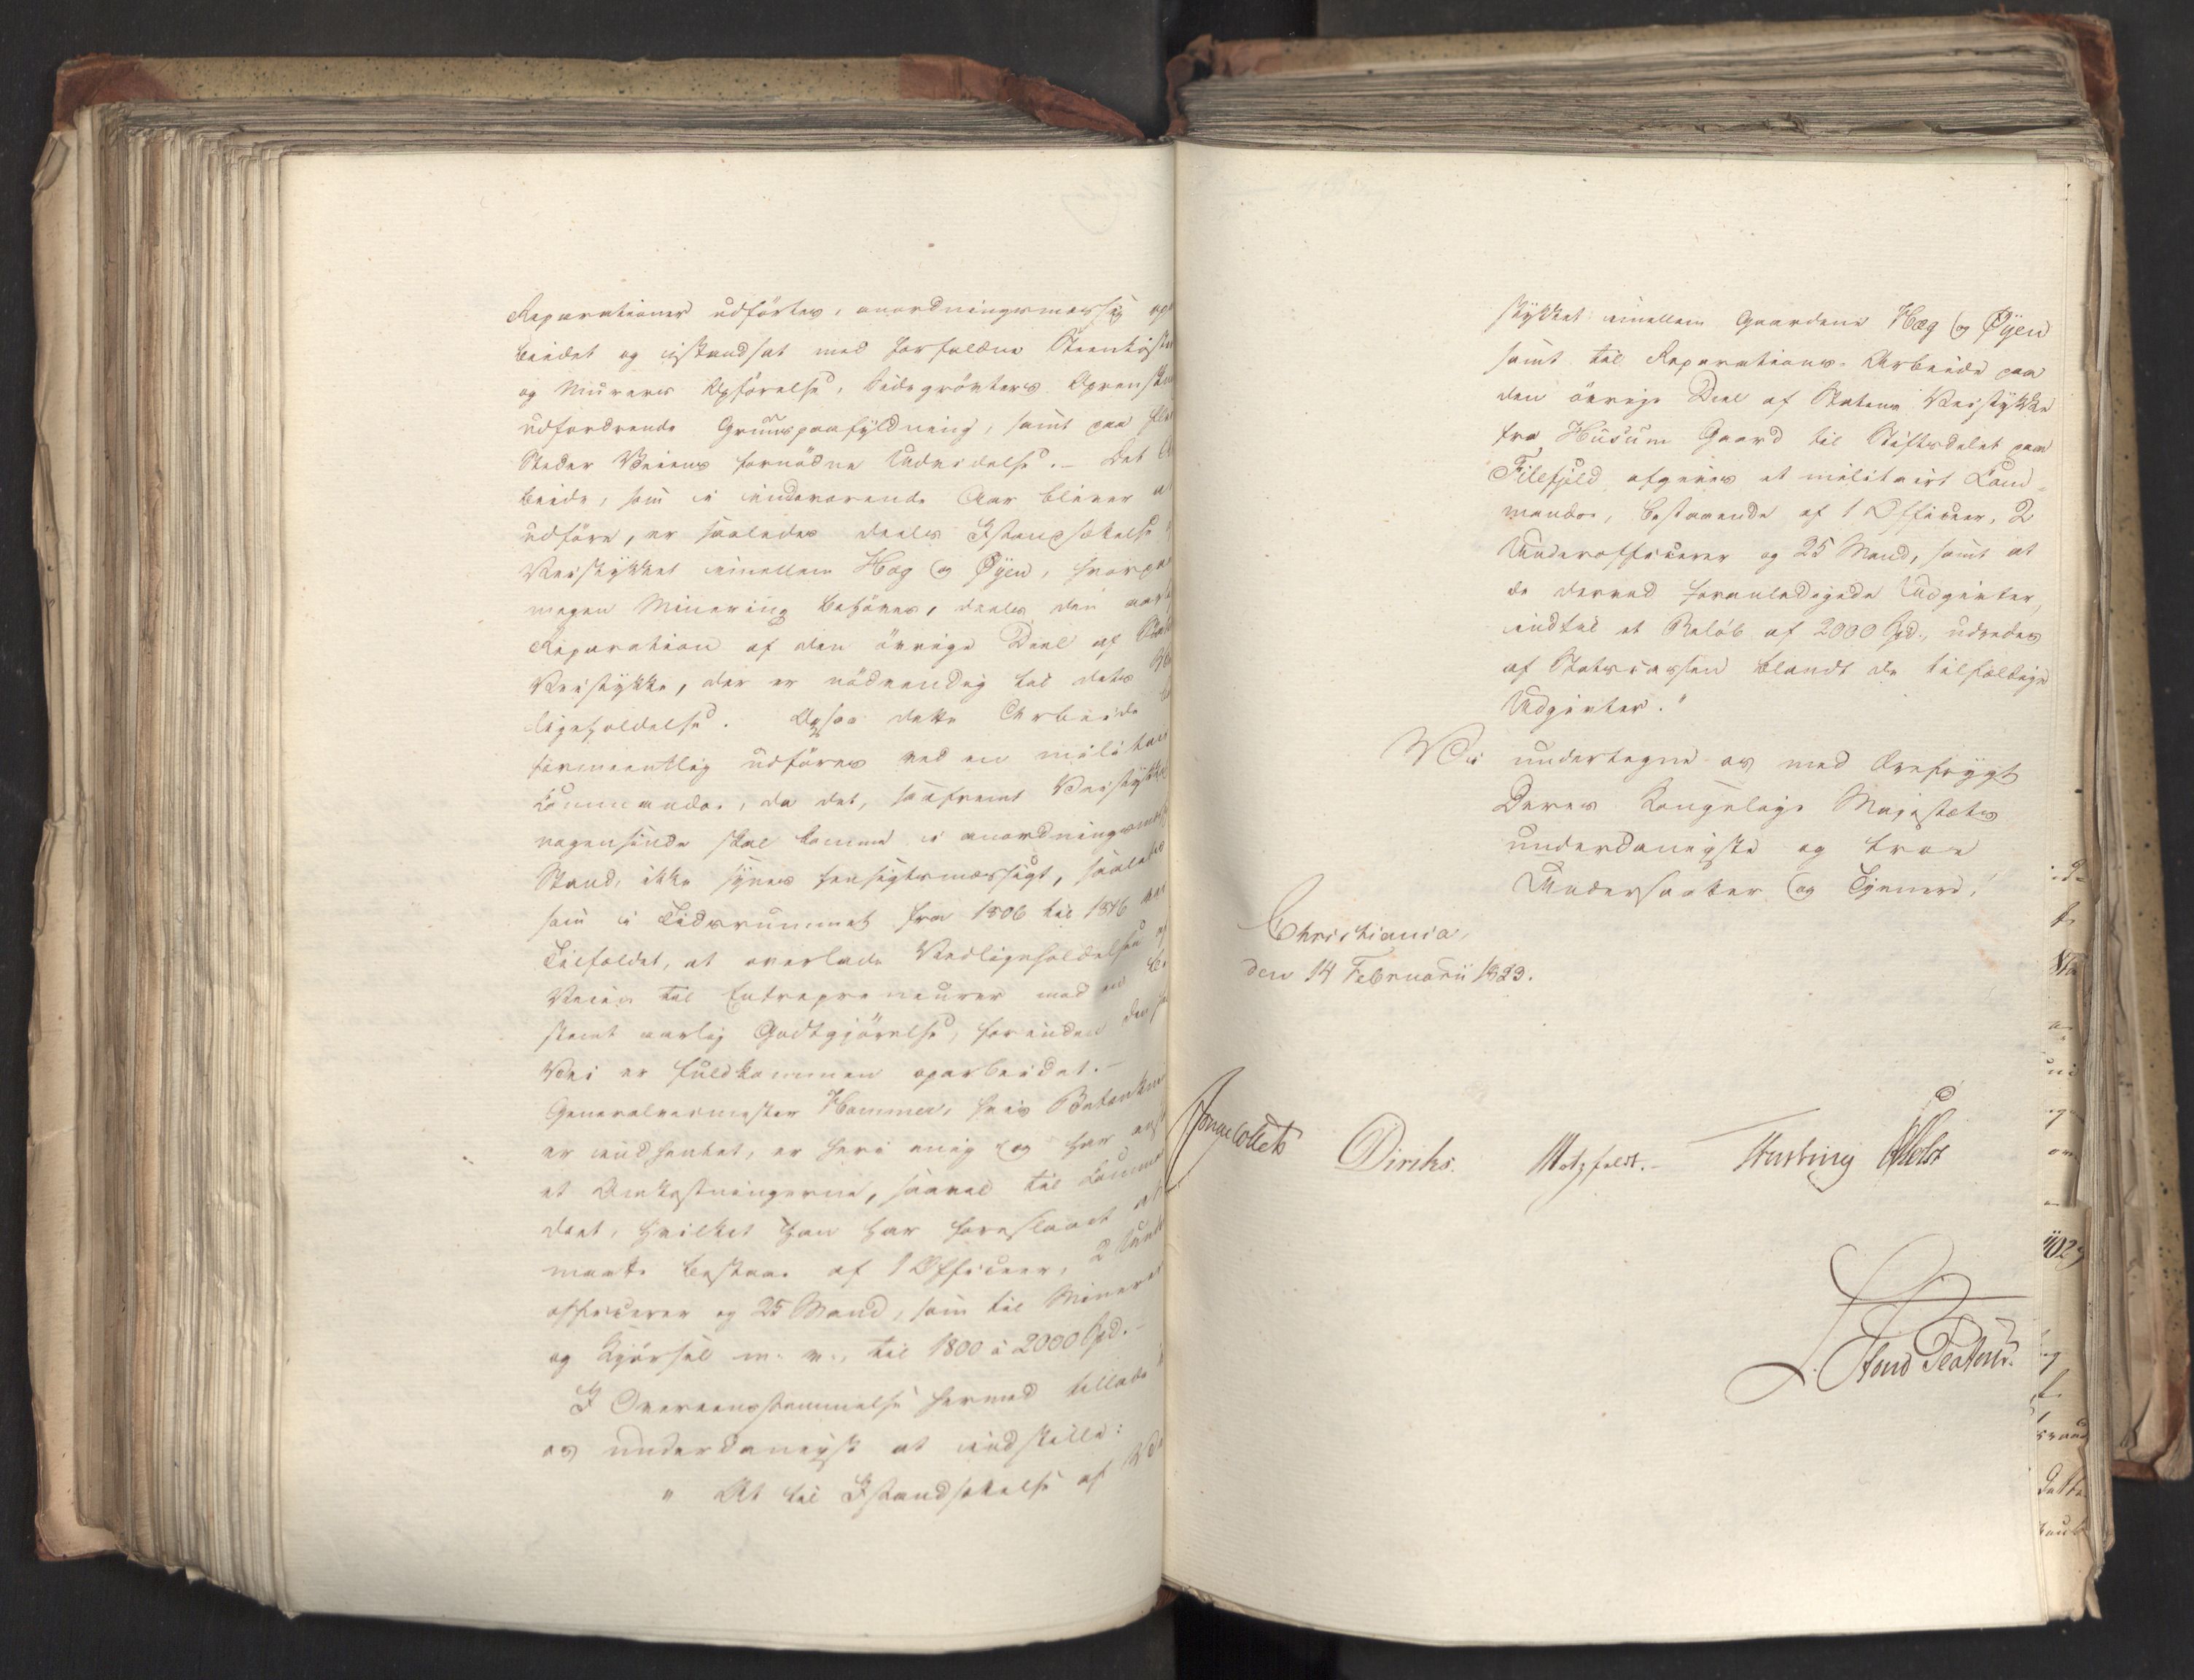 Reparationer udförtes, anordningsmæssig op
beidet og istandsat med forfaldne Steenkister
og Murers Opförelse, Sidegrövters Oprenskn
udfordrende Gruuspaafyldning, samt paa flere
Steder Veiens fornödne Udvidelse. – Det Ar
beide, som i indeværende Aar bliver at
udföre, er saaledes deels Istandsættelse
Veistykket imellem Hæg og Øyen, hvorpaa
megen Minering behöves, deels den aarl
Reparation af den övrige Deel af Stat
Veistykke, der er nödvendig til dets Ved
ligeholdelse. Ogsaa dette Arbeide
formeentlig udföres ved en militair
Commando, da det, saafremt Veistykket
nogensinde skal komme i anordningsmæs
Stand, ikke synes hensigtsmæssigt, saaledes
som i Tidsrummet fra 1806 til 1816 var
Tilfældet, at overlade Vedligeholdelsen af
Veien til Entrepreneurer med en be
stemt aarlig Godtgjörelse, forinden den
Vei er fuldkommen oparbeidet. –
Generalveimester Hammer, hvis Betænkn
er indhentet, er heri enig og har ans
at Omkostningerne, saavel til Comman
doet, hvilket han har foreslaaet at
maatte bestaae af 1 Officeer, 2 Under
officerer og 25 Mand, som til Minering
og Kjörsel m. v., til 1800 à 2000 Spd. –
I Overeensstemmelse hermed tillade
os underdanigst at indstille:
" At til Istandsættelse af Vei
stykket imellem Gaardene Hæg og Øyen
samt til Reparations-Arbeide paa
den övrige Deel af Statens Veistykke
fra Husum Gaard til Stiftsdelet paa
Filefjeld afgives et militairt Com-
mando, bestaaende af 1 Officeer, 2
Underofficerer og 25 Mand, samt at
de derved foranledigede Udgivter,
indtil et Belöb af 2000 Spd., udredes
af Statscassen blandt de tilfældige
Udgivter."
Vi undertegne os med Ærefrygt
Deres Kongelige Majestæts
underdanigste og troe
Undersaatter og Tjenere!
Christiania,
den 14 Februarii 1823.
Jonas Collett Diriks. Motzfeldt. – Fasting Holst